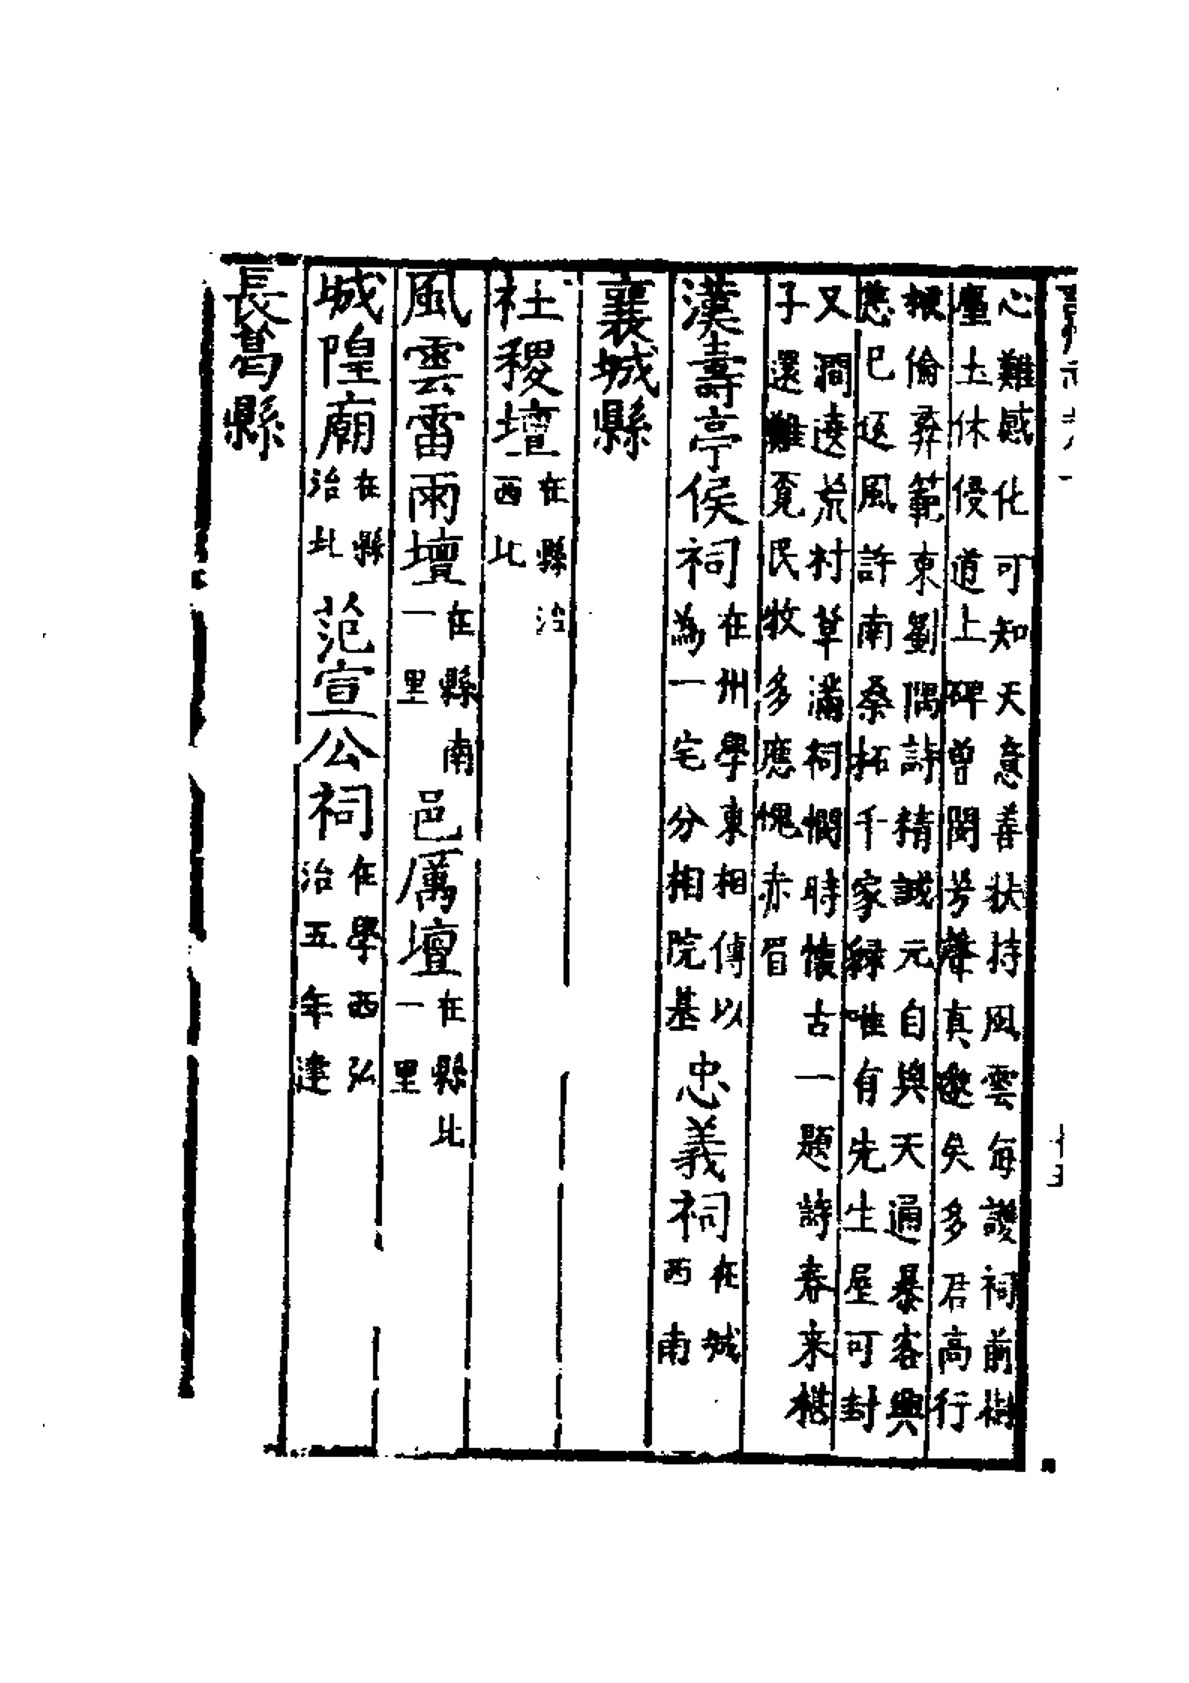 心難感化可知天意善扶持風雲每護祠前樹
塵土休侵道上碑曽聞芳聲真邈矣多君高行
振倫彛範東劉隅詩精誠元自與天通暴客興
慈已返風許南桑拓千家緑唯有先生屋可封
又澗邊荒村草滿祠憫時懷古一題詩春来椹
子還難覔民牧多應愧赤眉
漢壽亭侯祠在州學東相傳以為一宅分相院基 忠義祠在城西南
襄城縣
社稷壇在縣治西北
風雲雷雨壇在縣南一里 邑厲壇在縣北一里
城隍廟在縣治北 范宣公祠在學西弘治五年建
長葛縣